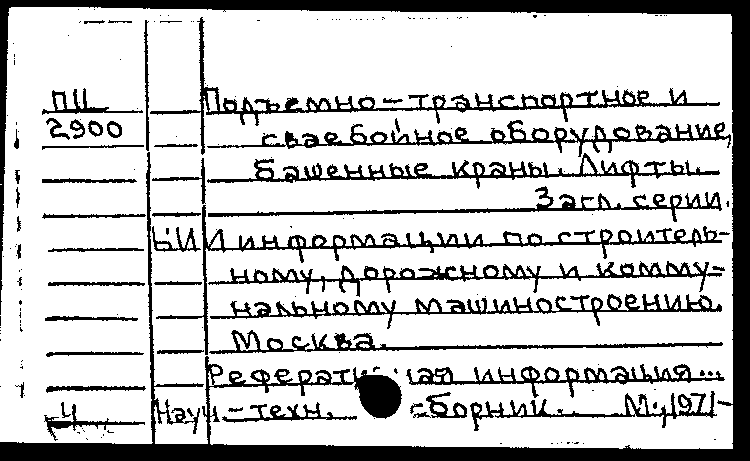 ПЦ Подъемно-транспортное и
2900 сваебойное оборудование,
башенные краны. Лифты.
Загл. серии.
информации по строитель-
ному, дорожному и комму-
нальному машиностроению.
Москва.
информация...
Науч.-техн. сборник. М., 1971-